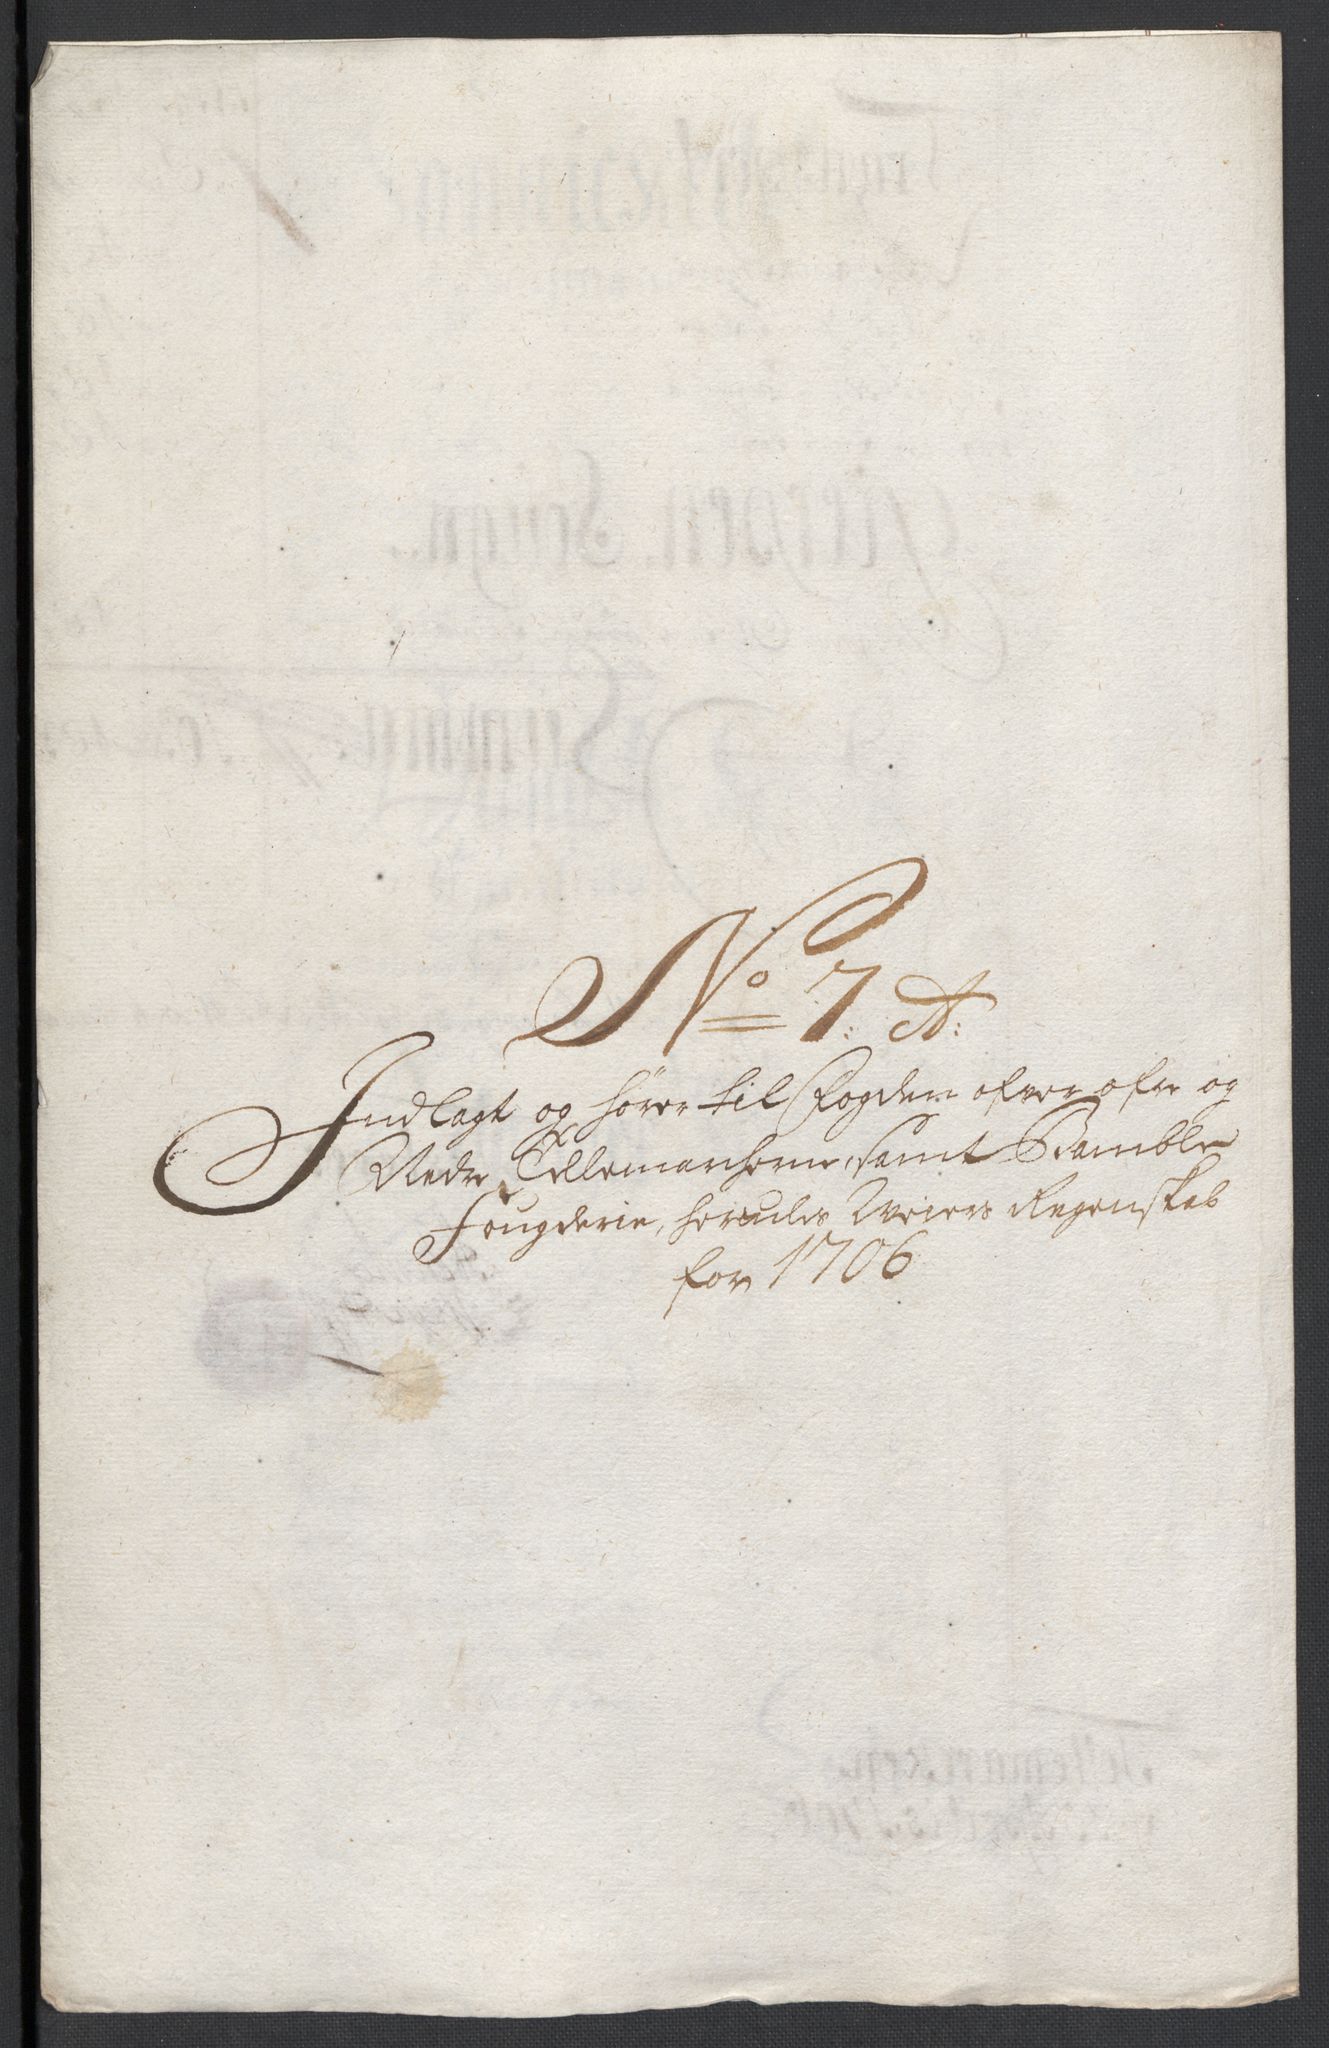 No 7. A:
Indlagt og hører til Fogden ofver øfre og
Nedre Tellemarcherne, samt Bamble
Fougderie, herculis Weiers Regenskab
for 1706